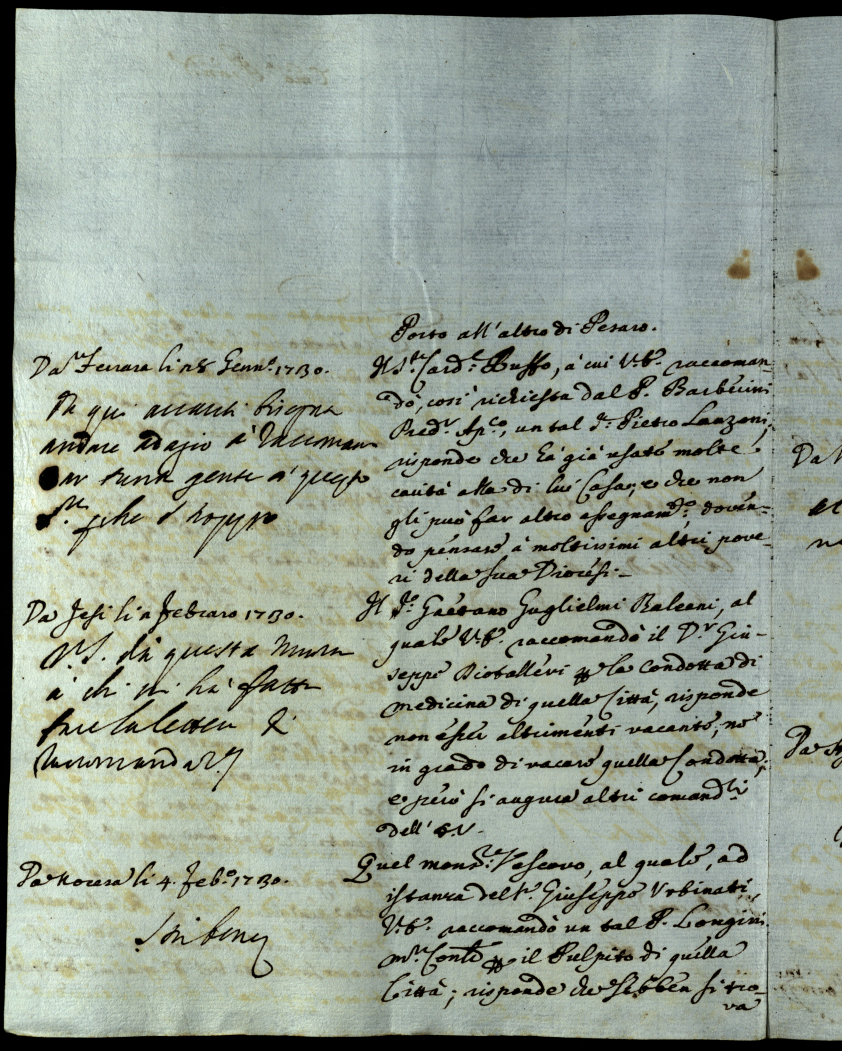 Porto all'altro di Pesaro.
Da Ferrara li 28 Genn.o 1730.
Il S.r Card.e Ruffo, à cui V.E. raccoman-
dò, così richiesta dal P. Barberini
Pred.r Ap.co, un tal D. Pietro Lanzoni,
risponde che hà già usato molte
carità alla di lui Casa, e che non
gli può far altro assegnam.to, doven-
do pensare à moltissimi altri pove-
ri della sua Diocesi.
Da qui avanti bisogna
andare adagio à raccoman
dar gente à questo
Sre
Da Jesi li Febraro 1730.
Il S.r Gaetano Guglielmi Baleani, al
quale V.E. raccomandò il D.r Giu-
seppe Dioballevi p la condotta di
medicina di quella Città, risponde
non esser altrimenti vacante, nè
in grado di vacare quella Condotta,
e però si augura altri comand.ti
dell' E.V.
dia questa nuova
à chi ci hà fatto
fare la lettera di
raccomandaz.
Da Nocera li 4. Feb.o 1730.
Quel mons.r Vescovo, al quale, ad
istanza del S.r Giuseppe Urbinati,
V.E. raccomandò un tal P. Longini
m.r Conv.le p il Pulpito di quella
Città; risponde che sebben si tro-
va
Stà bene